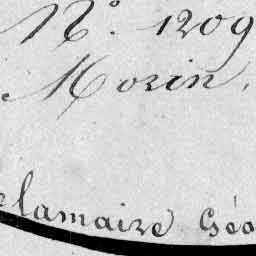 N°. 1209
Morin.
elamaire Géo